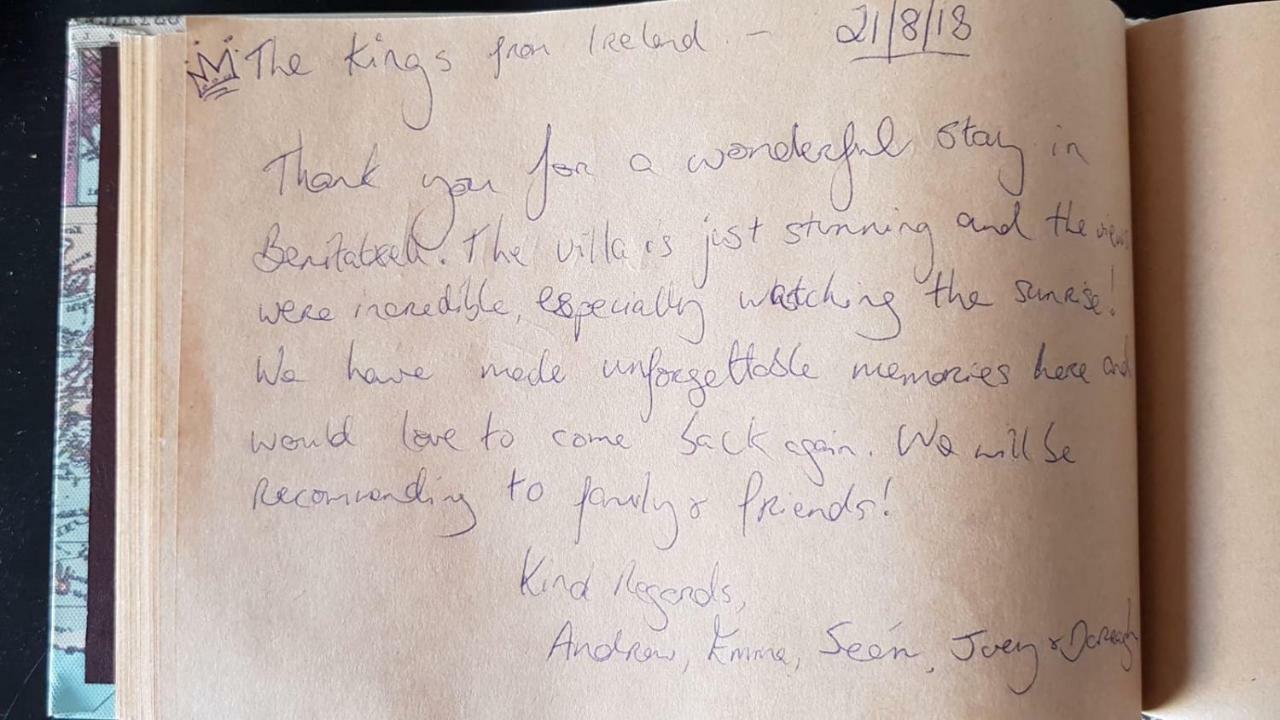 The Kings from Ireland - 21/8/18
Thank you for a wonderful stay in
Benitatxell. The villa is just stunning and the views
were incredible, especially watching the sunrise!
We have made unforgettable memories here and
would love to come back again. We will be
recommending to family & friends!
Kind Regards,
Andrew, Emma, Seán, Joey & Darragh